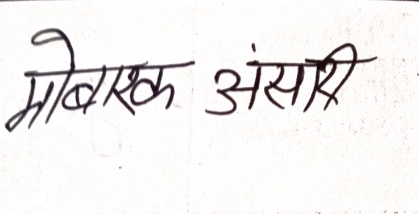 मोबारक अंसारी